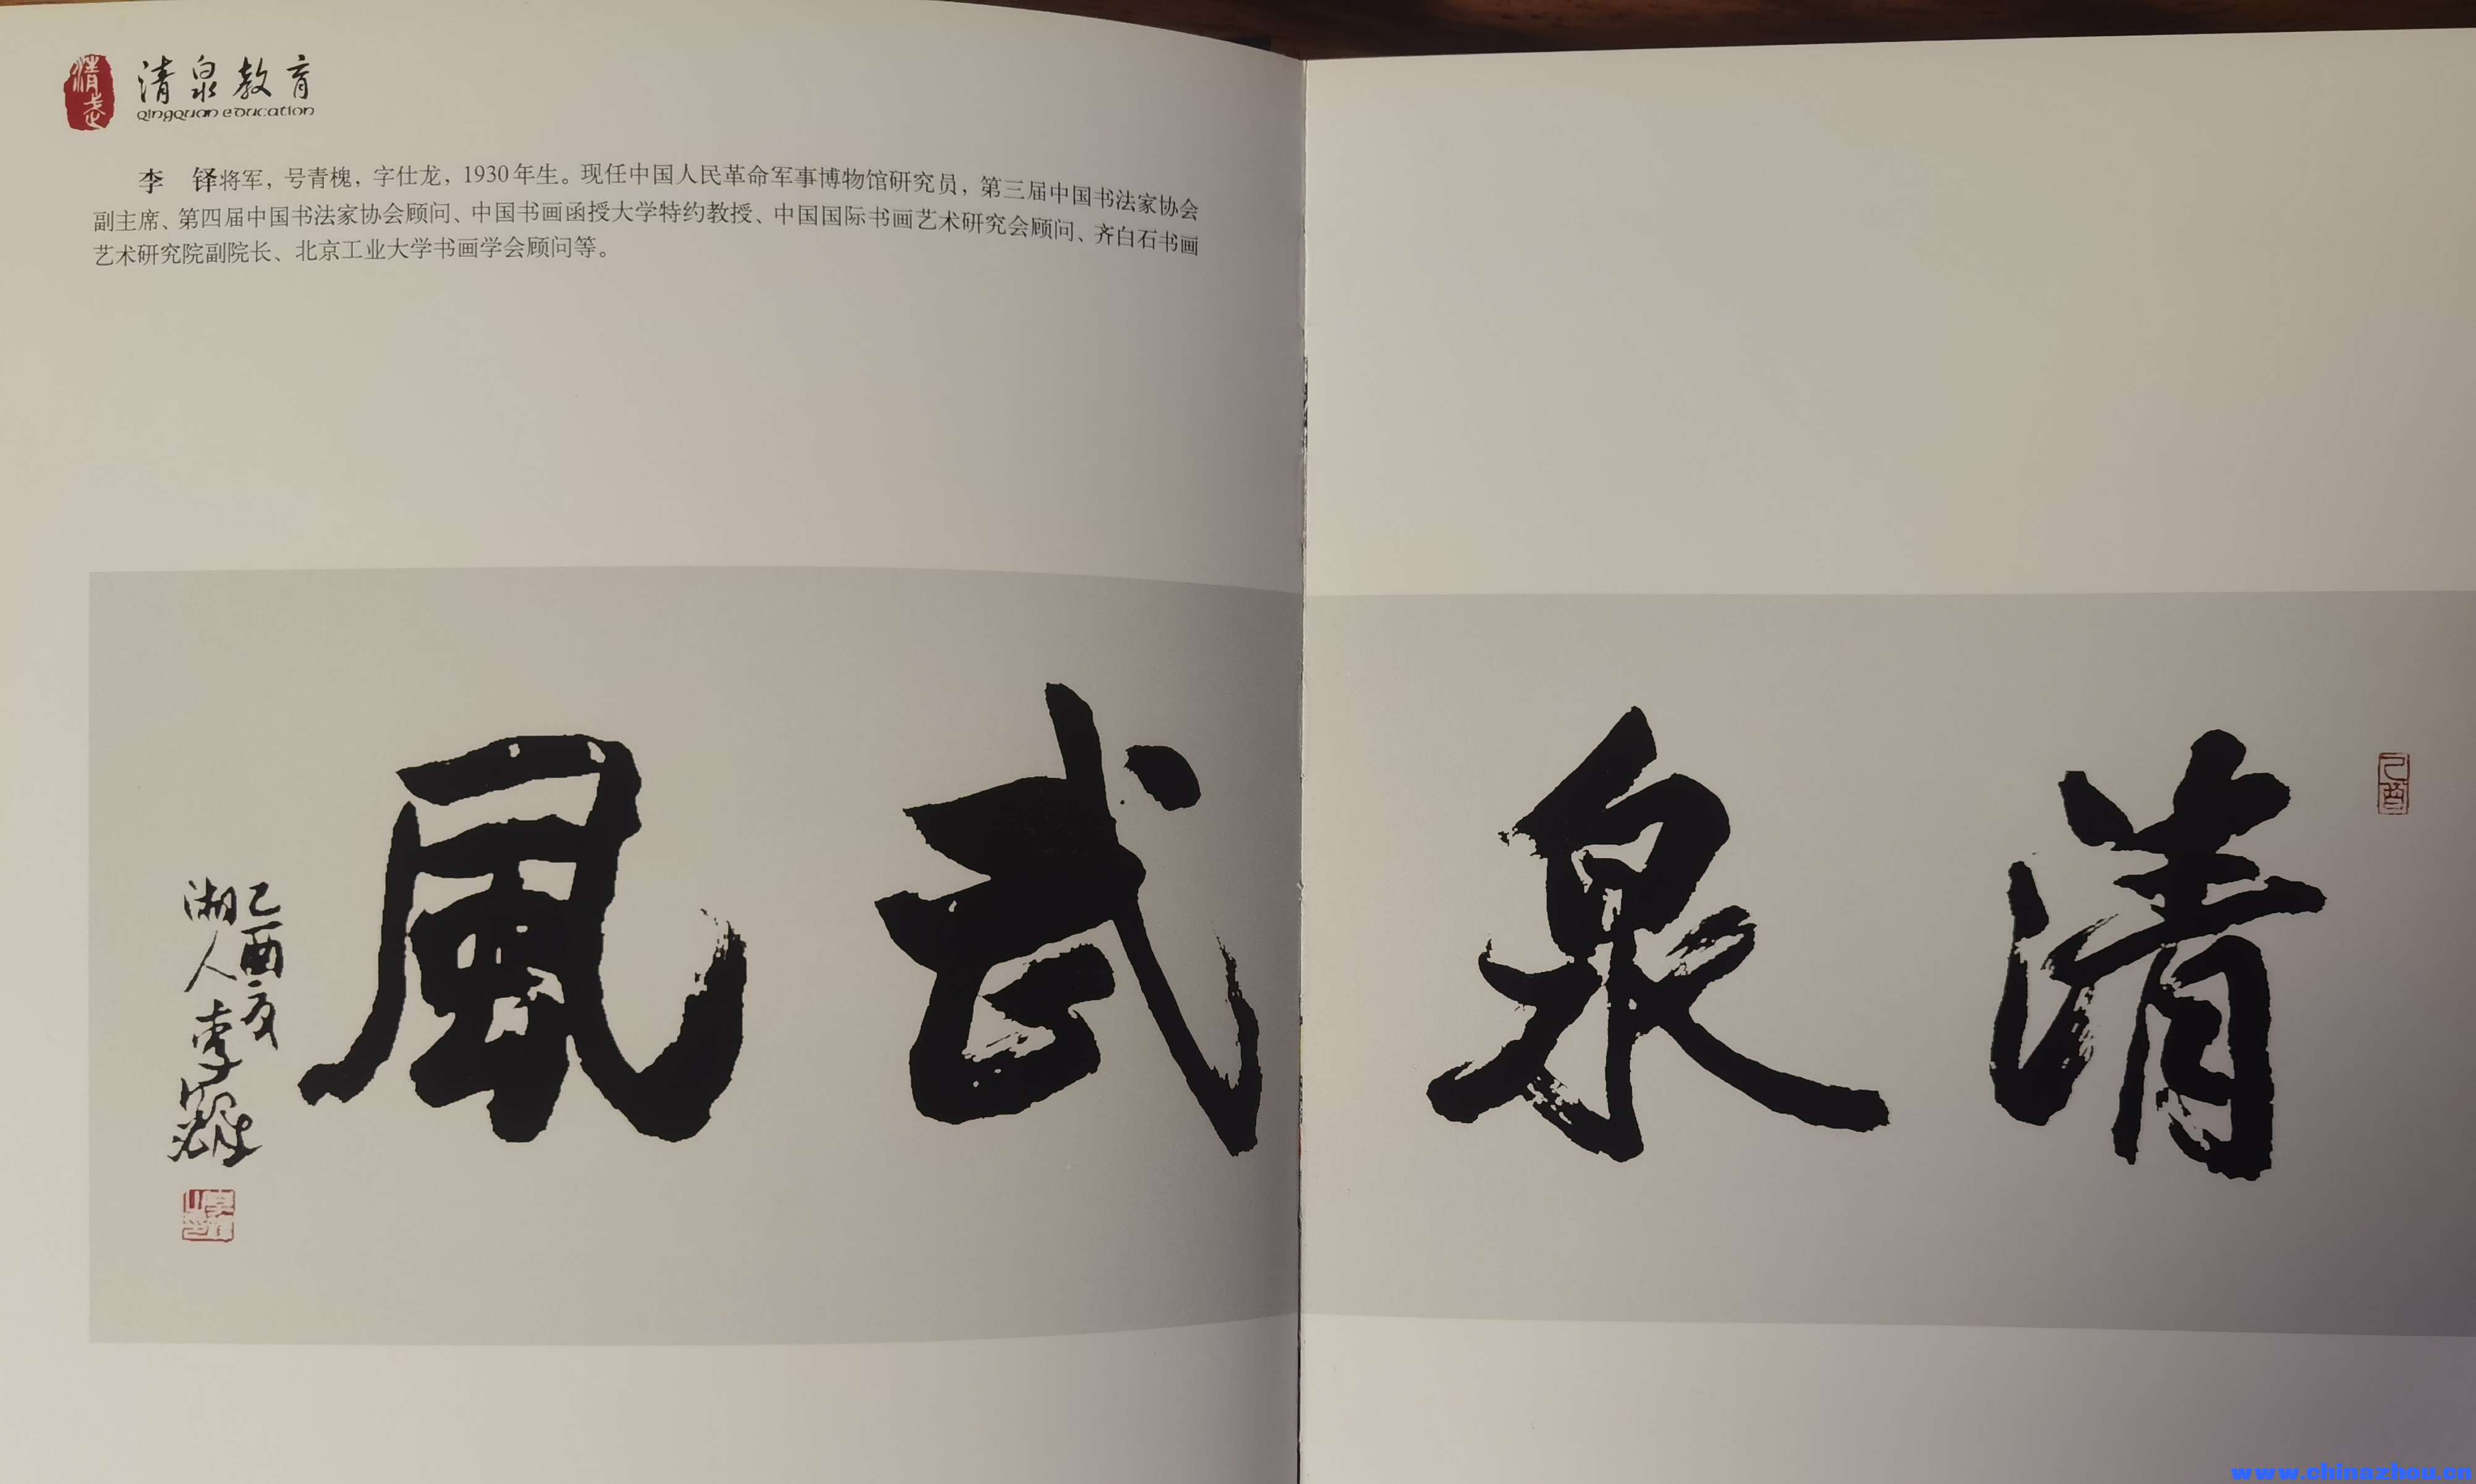 清泉教育
qingquan education
李 铎将军，号青槐，字仕龙，1930年生。现任中国人民革命军事博物馆研究员，第三届中国书法家协会
副主席、第四届中国书法家协会顾问、中国书画函授大学特约教授、中国国际书画艺术研究会顾问、齐白石书画
艺术研究院副院长、北京工业大学书画学会顾问等。
清泉武風
乙酉夏
湘人李鐸
乙酉
www.chinazhou.cn